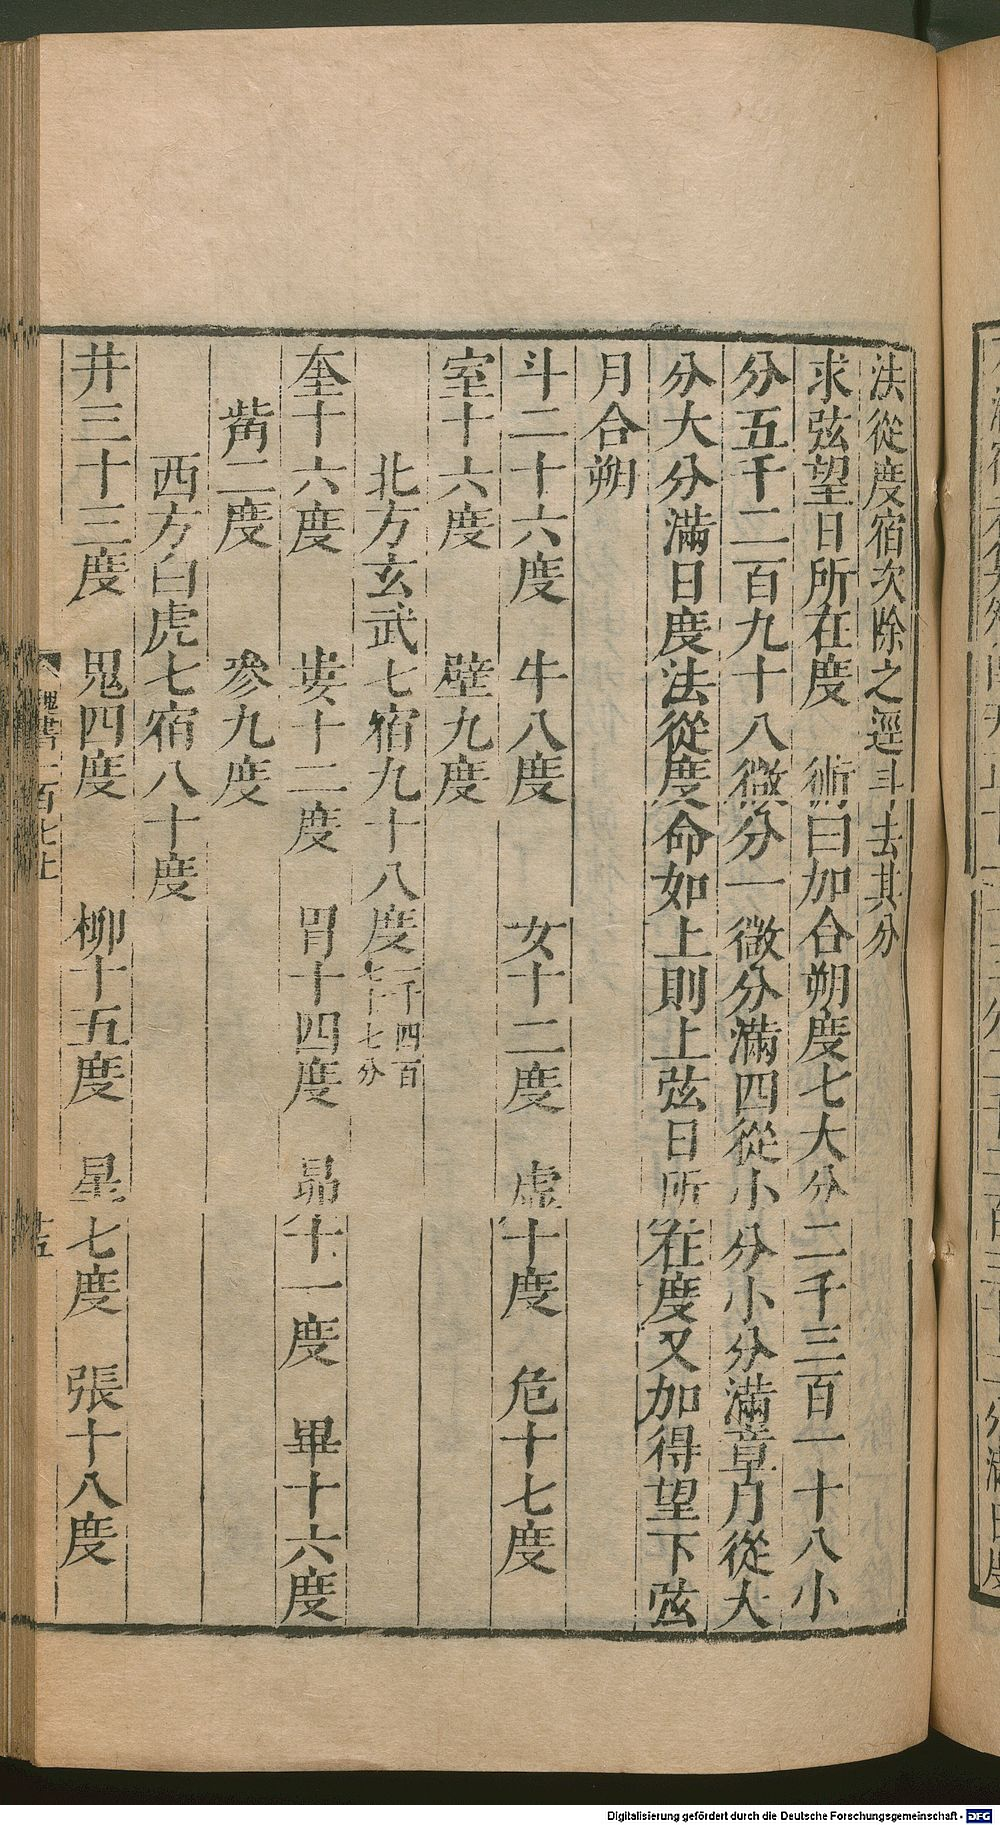 法從度宿次除之逕斗去其分
求弦望日所在度　術曰加合朔度七大分二千三百一十八小
分五千二百九十八微分一微分滿四從小分小分滿章月從大
分大分滿日度法從度命如上則上弦日所在度又加得望下弦
月合朔
斗二十六度　牛八度　女十二度　虛十度　危十七度
室十六度　壁九度
北方玄武七宿九十八度一千四百七十七分
奎十六度　婁十二度　胃十四度　昴十一度　畢十六度
觜二度　參九度
西方白虎七宿八十度
井三十三度　鬼四度　柳十五度　星七度　張十八度
魏書一百七上
Digitalisierung gefördert durch die Deutsche Forschungsgemeinschaft - DFG